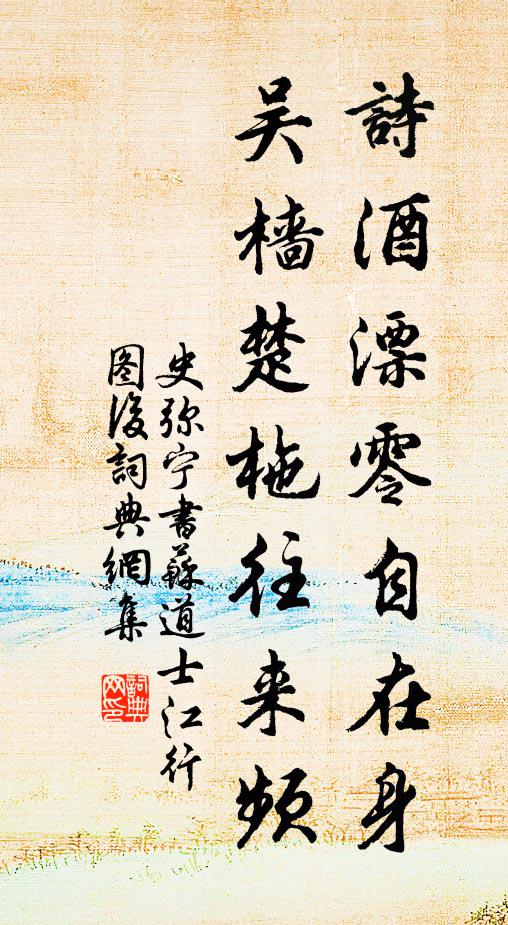 詩酒漂零自在身
吴檣楚柂往来頻
史弥宁書蘇道士江行
图後詞典網集
詞典
网印